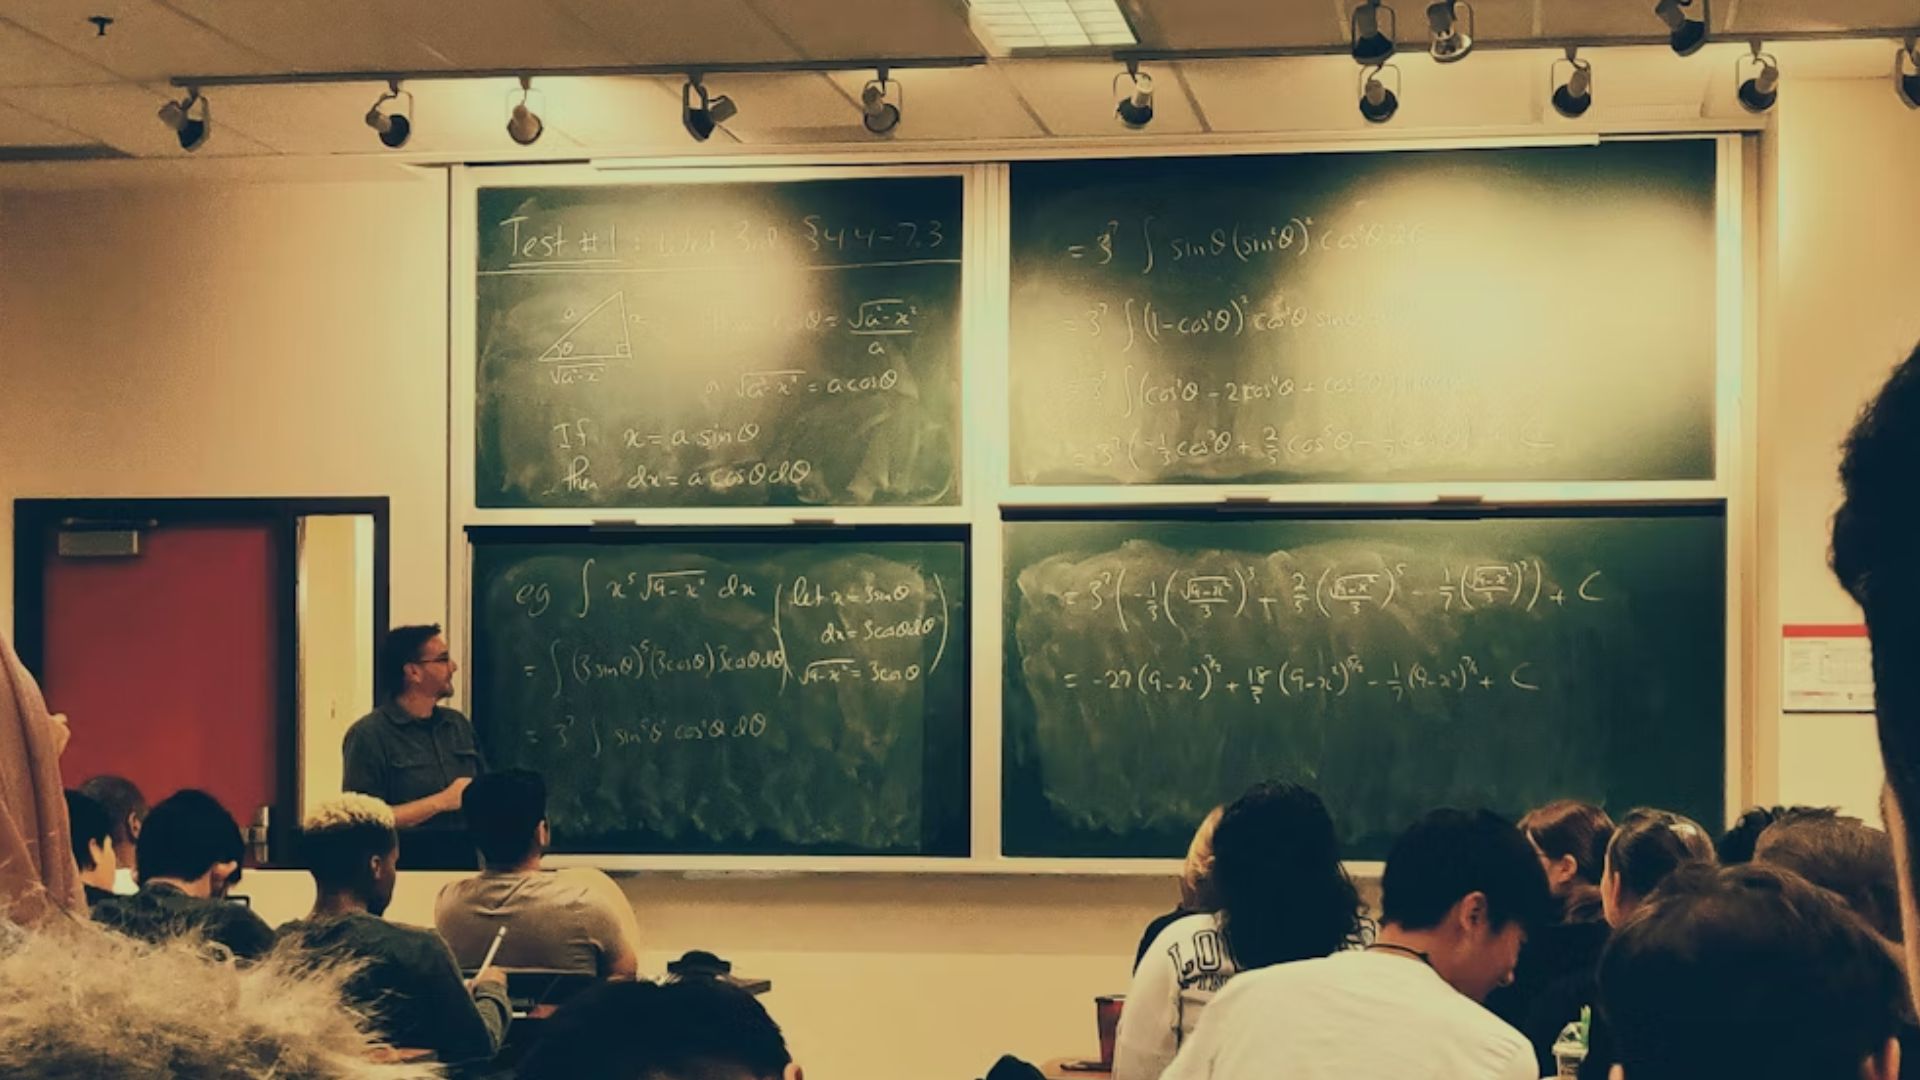 Test #1 : §4.4-7.3
a
x
θ
√a²-x²
θ = √a²-x² / a
√a²-x² = a cosθ
If x = a sinθ
then dx = a cosθ dθ
eg ∫ x⁵ √9-x² dx (let x = 3sinθ
dx = 3cosθdθ
= ∫ (3sinθ)⁵ (3cosθ) 3cosθdθ
√9-x² = 3cosθ)
= 3⁷ ∫ sin⁵θ cos²θ dθ
= 3⁷ ∫ sinθ (sin²θ)² cos²θ
= 3⁷ ∫ (1-cos²θ)² cos²θ
= 3⁷ ∫ (cos²θ - 2cos⁴θ +
= 3⁷ (-1/3 cos³θ + 2/5 cos⁵θ -
= 3⁷ (-1/3 (√9-x²/3)³ + 2/5 (√9-x²/3)⁵ - 1/7 (√9-x²/3)⁷) + C
= -27 (9-x²)^3/2 + 18/5 (9-x²)^5/2 - 1/7 (9-x²)^7/2 + C
LO